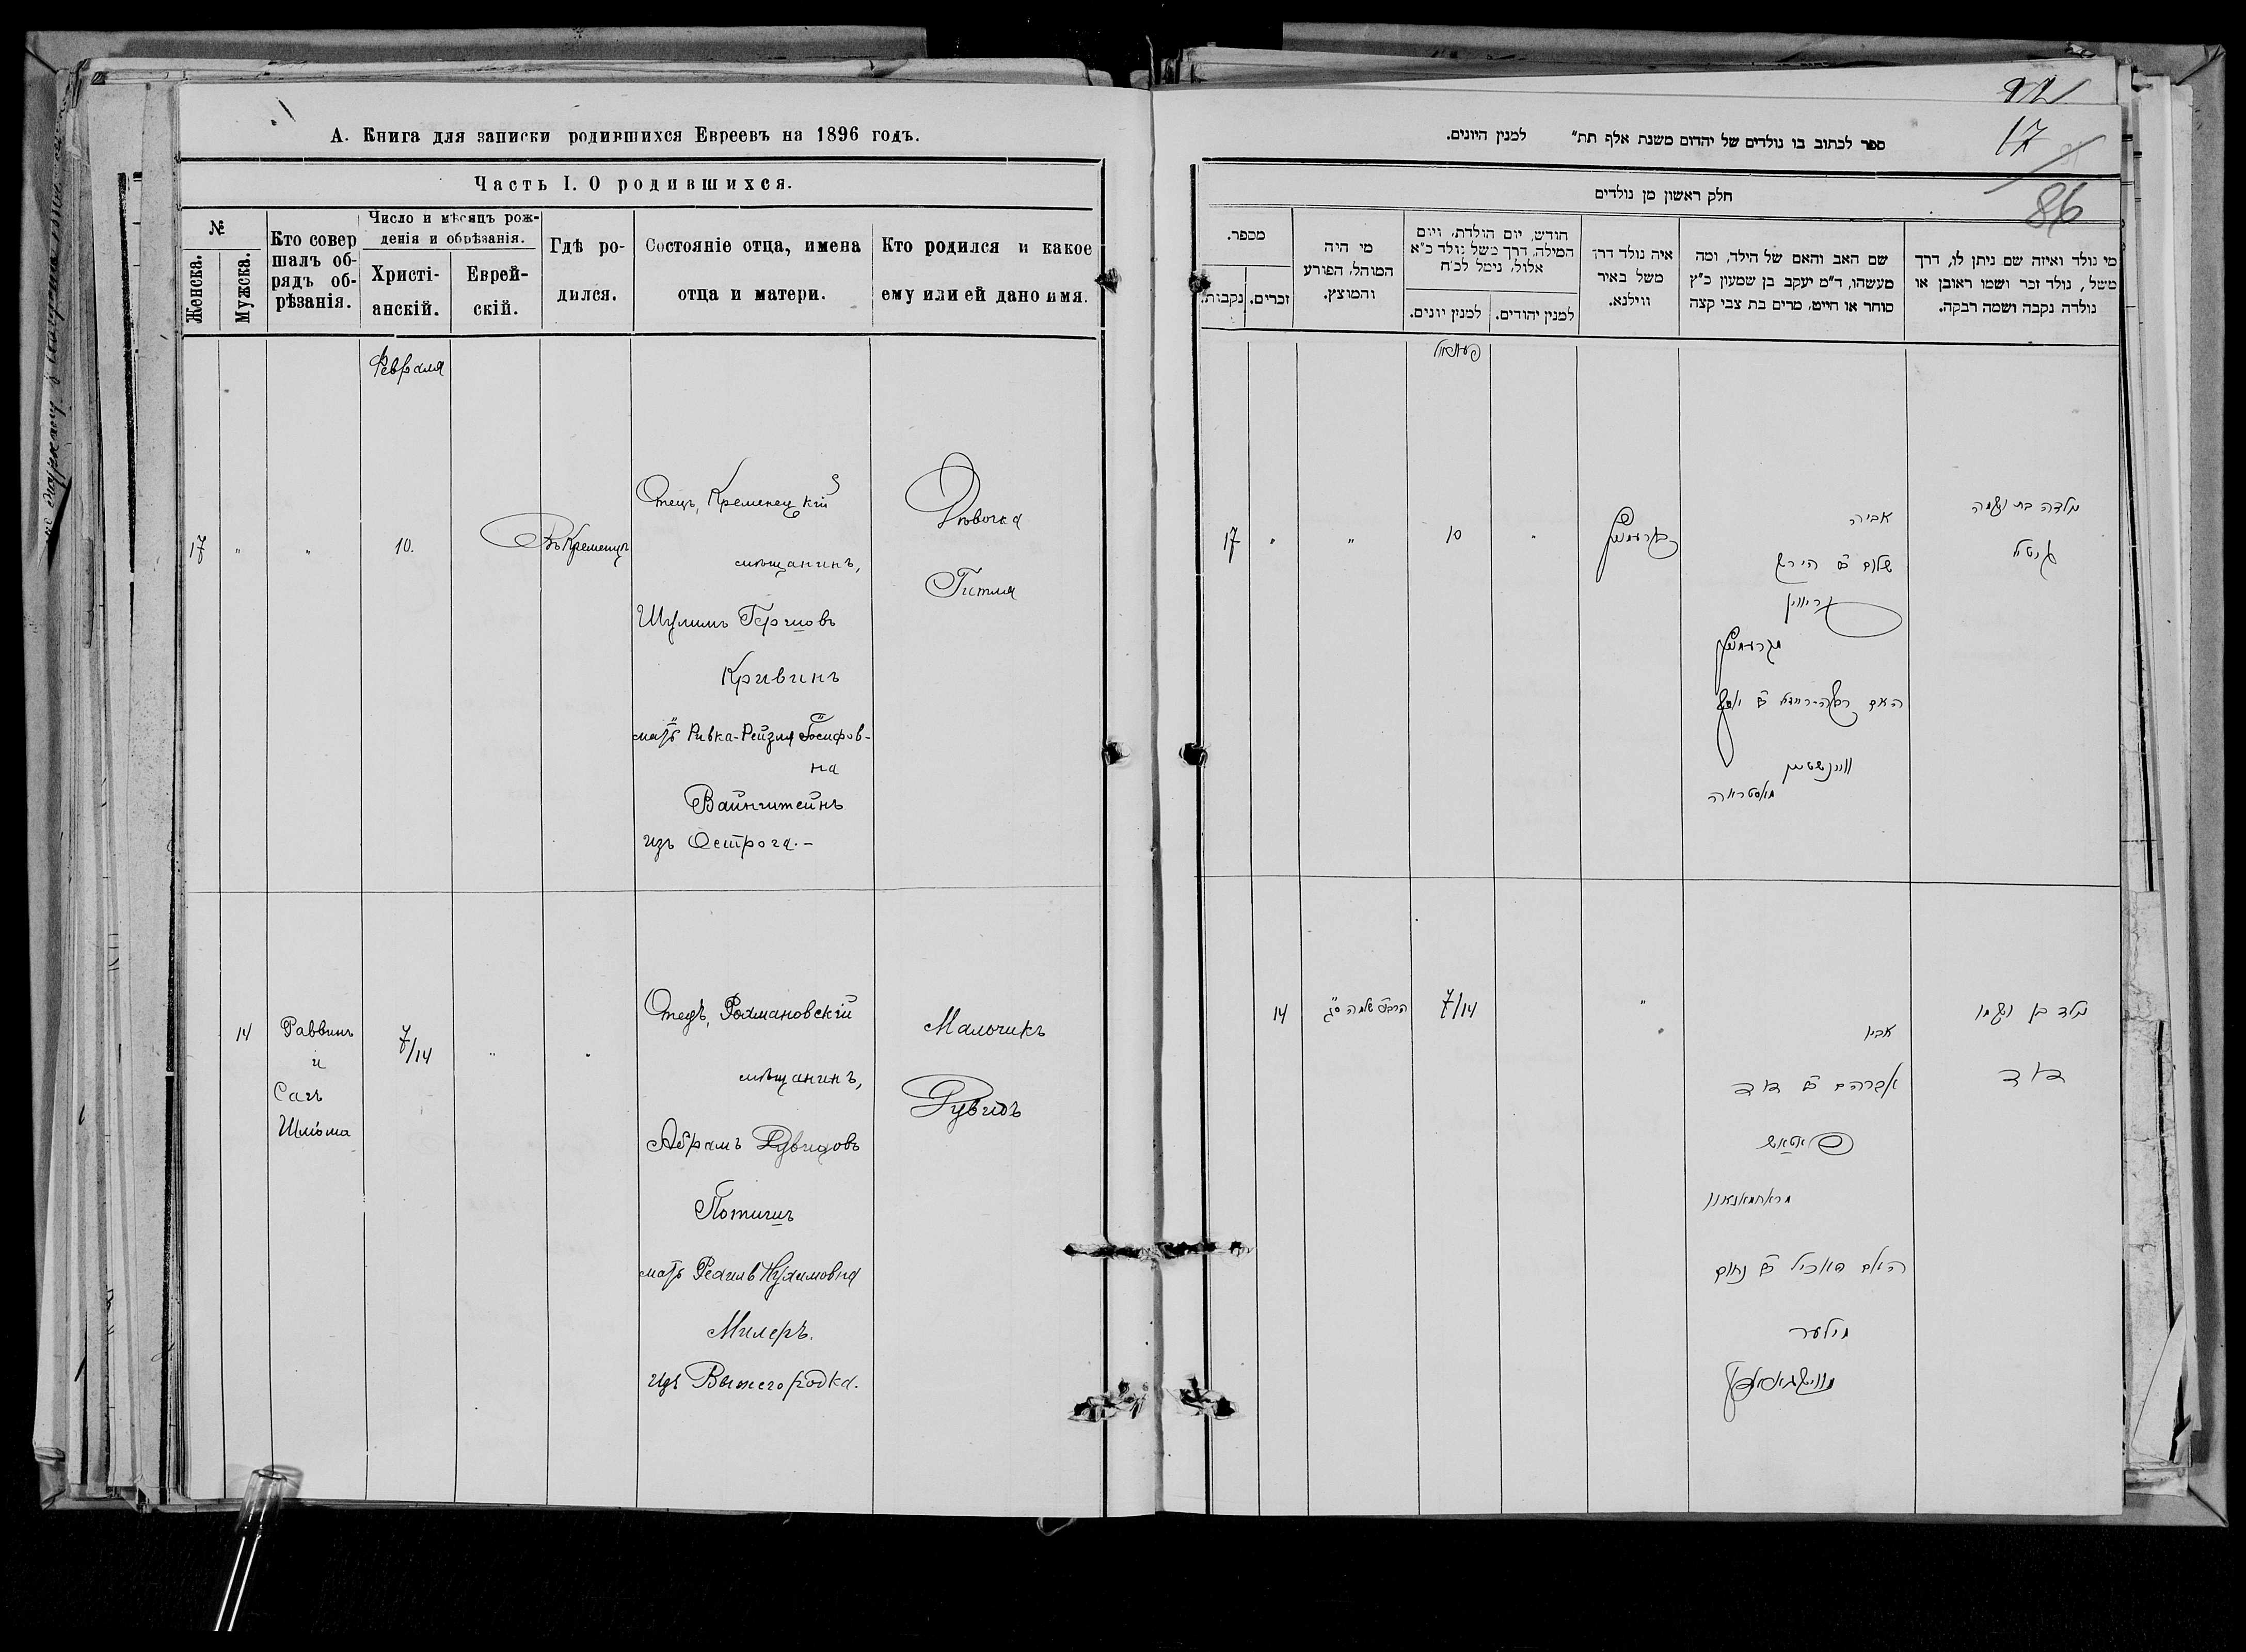 А. Книга для записки родившихся Евреевъ на 1896 годъ.
Часть I. О родившихся.
№
Женска.
Мужска.
Кто совер
шалъ об-
рядъ об-
рѣзанія.
Число и мѣсяцъ рож-
денія и обрѣзанія.
Христі-
анскій.
Еврей-
скій.
Гдѣ ро-
дился.
Состояніе отца, имена
отца и матери.
Кто родился и какое
ему или ей дано имя.
Февраля
17
"
"
10.
Въ Кременцѣ
Отецъ, Кременецкій
мѣщанинъ,
Шулимъ Гершовъ
Кривинъ
мать Ривка-Рейзля Іосифов-
на
Вайнштейнъ
изъ Острога.-
Дѣвочка
Гитля
14
Раввинъ
и
Сагъ
Шлёма
7/14
"
"
Отецъ, Рахмановскій
мѣщанинъ,
Абрамъ Дувидовъ
Потишъ
мать Рехиль Нухимовна
Милеръ.
изъ Вышегородка.
Мальчикъ
Дувидъ
17
86
ספר לכתוב בו נולדים של יהדום משנת אלף תת״ למנין היונים.
חלק ראשון מן נולדים
מספר.
נקבות.
זכרים.
מי היה
המוהל, הפורע
והמוצץ.
חודש, יום הולדת, ויום
המילה, דרך משל נולד כ״א
אלול, נימל לכ״ח
למנין יונים.
למנין יהודים.
איה נולד דרך
משל באיר
ווילנא.
שם האב והאם של הילד, ומה
מעשהו, ד״מ יעקב בן שמעון כ״ץ
סוחר או חייט, מרים בת צבי קצה
מי נולד ואיזה שם ניתן לו, דרך
משל, נולד זכר ושמו ראובן או
נולדה נקבה ושמה רבקה.
17
"
"
10
"
אביה
שלום ב״ר הירש
קריווין
מקרעמניץ
ווינשטיין
מאסטראה
ילדה בת ושמה
גיטיל
14
7/14
"
אביו
אברהם ב״ר דוד
פאטאש
האם ראכיל ב״ר נחום
מילער
ילד בן ושמו
דוד